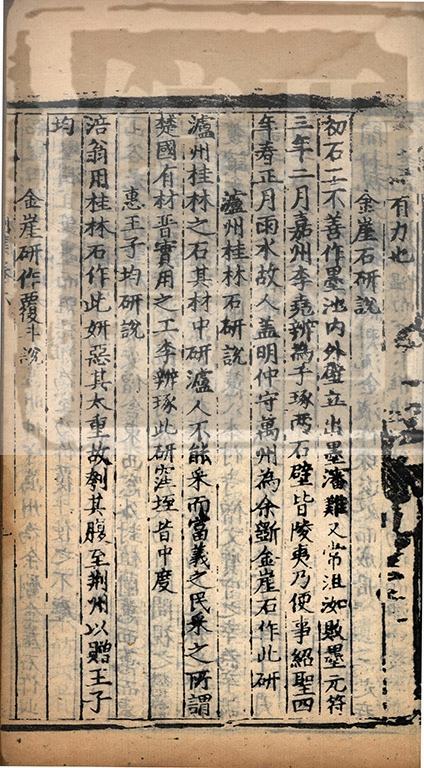 有力也
金崖石研說
初石工不善作墨池内外壁立出墨瀋難又常沮洳敗墨元符
三年二月嘉州李堯辨為手琢兩石壁皆陵夷乃便事紹聖四
年春正月雨水故人蓋明仲守萬州為余斵金崖石作此研
瀘州桂林石研說
瀘州桂林之石其材中研瀘人不能采而富義之民采之所謂
楚國有材晉實用之工李辨琢此研窪垤皆中度
惠王子均研說
涪翁用桂林石作此研惡其太重故刳其腹至荆州以贈王子
均
金崖研作覆斗說